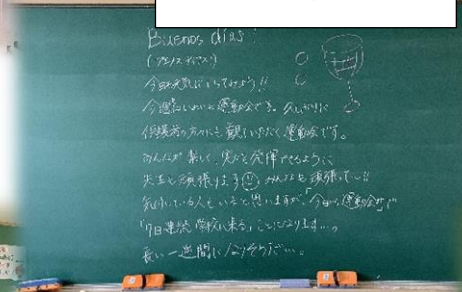 Buenos dias!
(ブエノスディアス!)
今日も元気にいってみよう!!
今週はいよいよ運動会です。久しぶりに
保護者の方々にも観ていただく運動会です。
みんなが楽しく、実力を発揮できるように
先生も頑張ります みんなも頑張ってい!!
気付いている人もいると思いますが、「今日から運動会まで
「7日連続学校に来る」ことになります…。
長い一週間になりそうだ…。